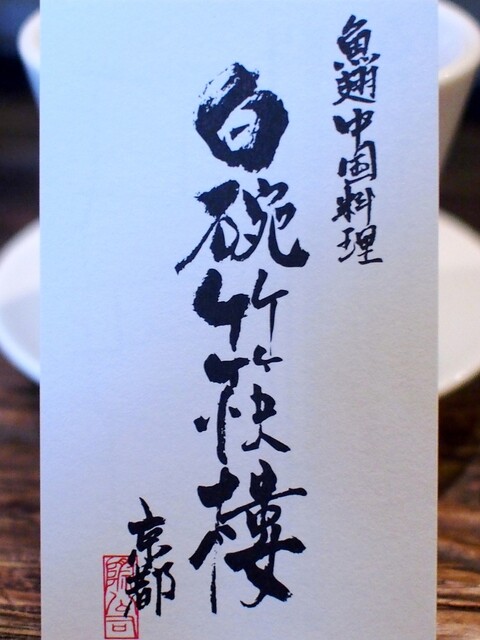 魚翅中国料理
白碗竹筷樓
京都